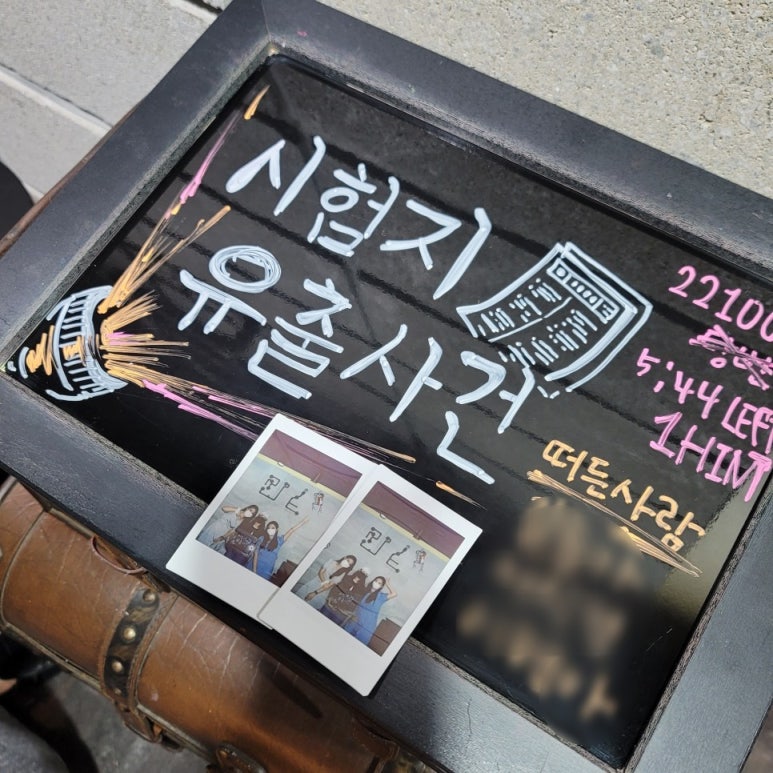 시험지
유출사건
22100
5:44 LEFT
1HINT
떠든사람